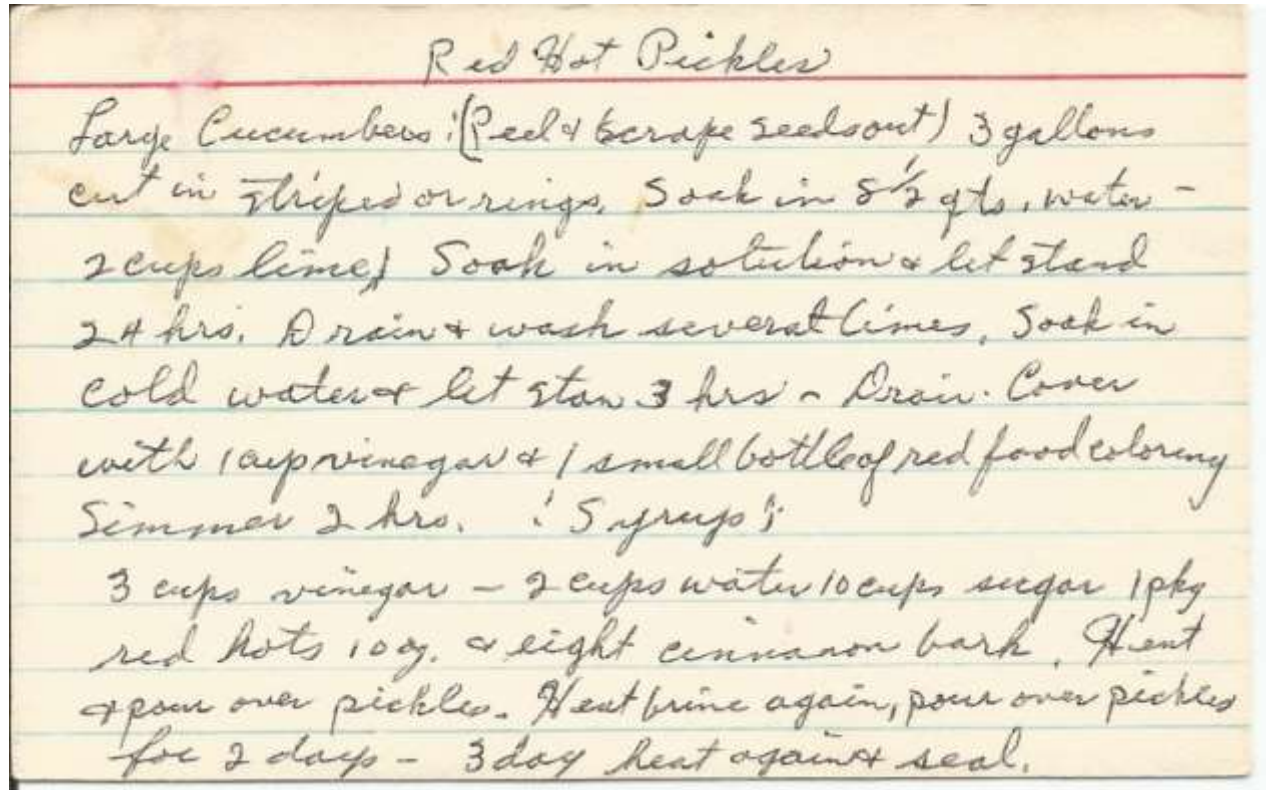 Red Hot Pickles
Large Cucumbers: (Peel & scrape seeds out) 3 gallons
cut in striped or rings. Soak in 8 1/2 qts. water -
2 cups lime) Soak in solution & let stand
24 hrs. Drain & wash several times. Soak in
cold water & let stan 3 hrs - Drain. Cover
with 1 cup vinegar & 1 small bottle of red food coloring
Simmer 2 hrs. : Syrup :
3 cups vinegar - 2 cups water 10 cups sugar 1 pkg
red hots 10 oz. & eight cinnamon bark. Heat
& pour over pickles. Heat brine again, pour over pickles
for 2 days - 3 day heat again & seal.